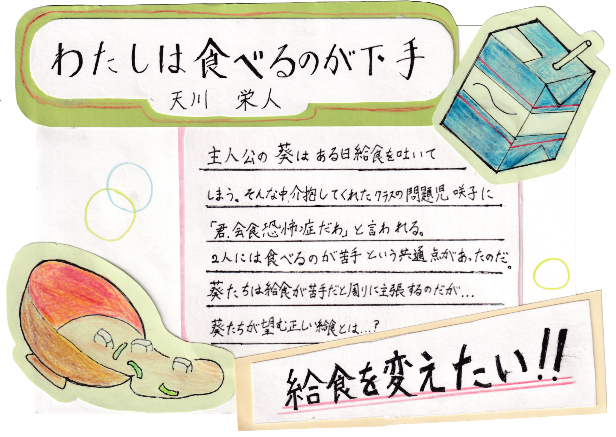 わたしは食べるのが下手
天川 栄人
主人公の葵はある日給食を吐いて
しまう。そんな中、介抱してくれたクラスの問題児 咲子に
「君、会食恐怖症だわ」と言われる。
2人には食べるのが苦手という共通点があったのだ。
葵たちは給食が苦手だと周りに主張するのだが…
葵たちが望む正しい給食とは…?
給食を変えたい!!